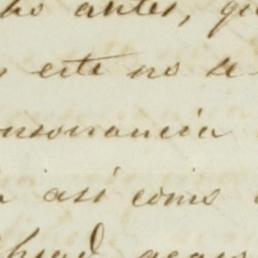 ho antes, qu
este no se-
onsonancia
así como